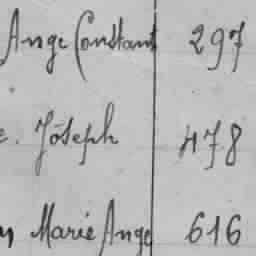 Ange Constant 297
e. Joseph 478
Marie Ange 616